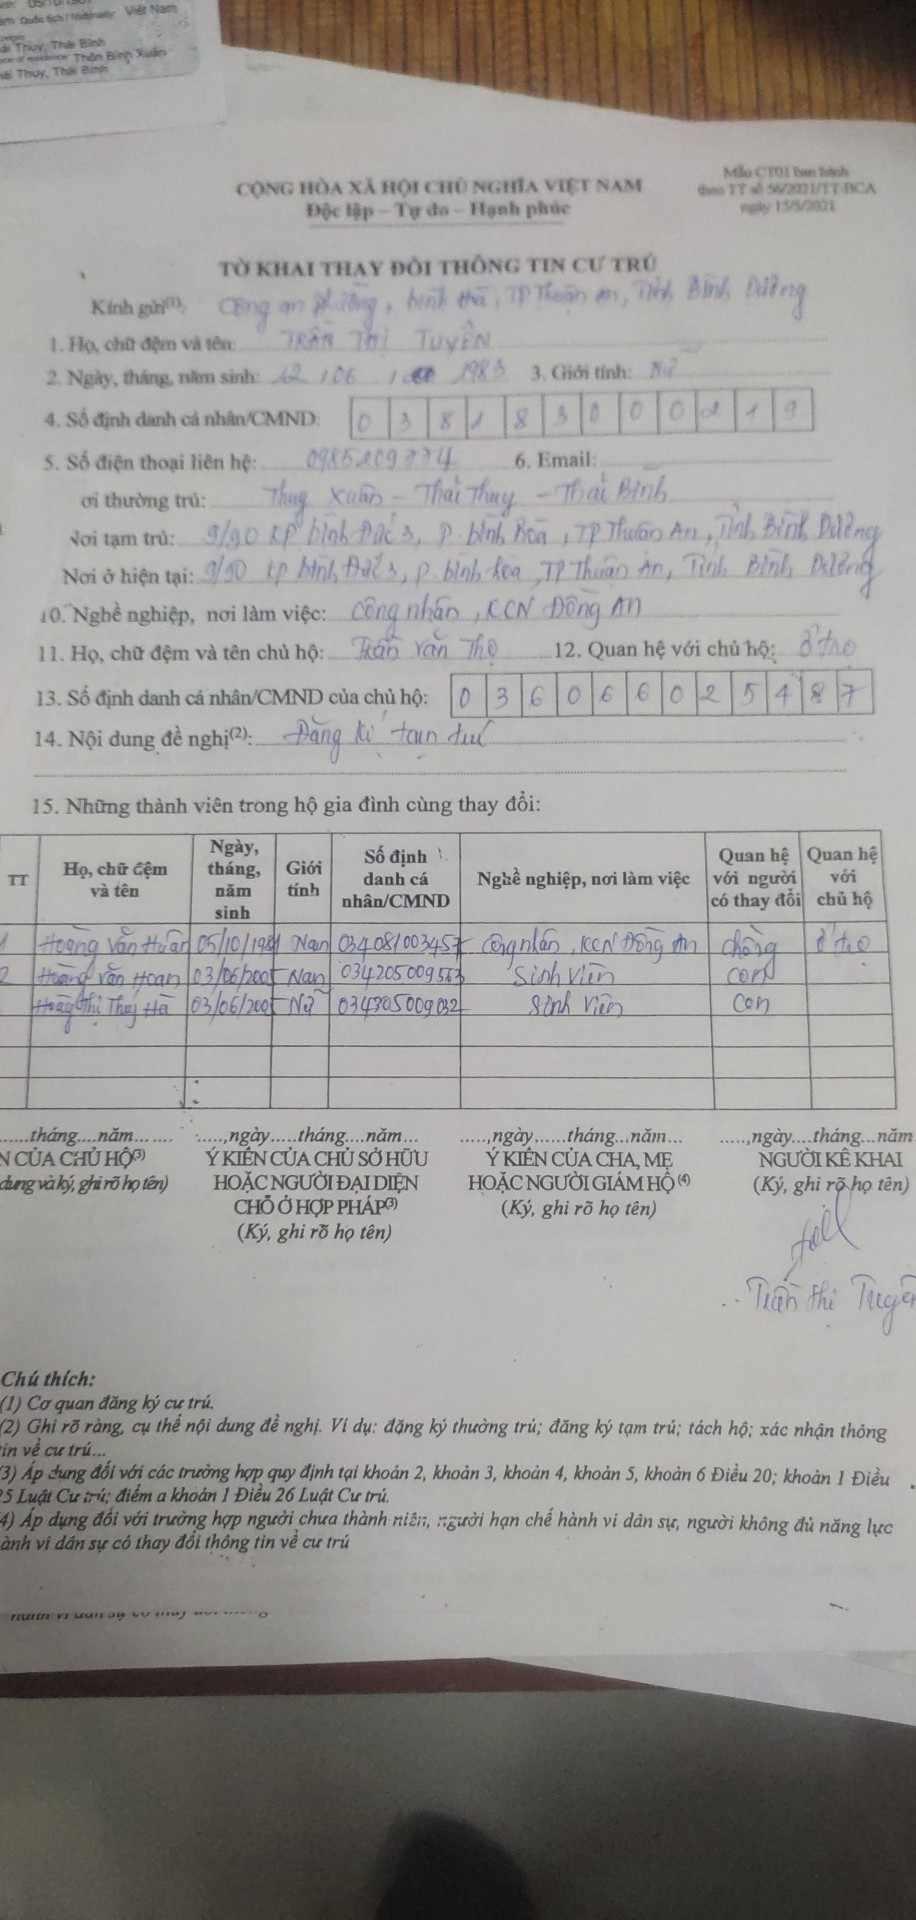 Quốc tịch / Nationality: Việt Nam
Thụy, Thái Bình
Thôn Bình Xuân
Thụy, Thái Bình
Mẫu CT01 ban hành
theo TT số 56/2021/TT-BCA
ngày 15/5/2021
CỘNG HÒA XÃ HỘI CHỦ NGHĨA VIỆT NAM
Độc lập – Tự do – Hạnh phúc
TỜ KHAI THAY ĐỔI THÔNG TIN CƯ TRÚ
Kính gửi(1): Công an phường, bình hoà, TP Thuận An, Tỉnh Bình Dương
1. Họ, chữ đệm và tên: TRẦN THỊ TUYÊN
2. Ngày, tháng, năm sinh: 12 / 06 / 1983 3. Giới tính: Nữ
4. Số định danh cá nhân/CMND: 0 3 8 1 8 3 0 0 0 2 1 9
5. Số điện thoại liên hệ: 6. Email:
ơi thường trú: Thụy Xuân - Thái Thụy - Thái Bình
Nơi tạm trú: 9/90 KP bình Đức 3, P. bình hoà, TP Thuận An, Tỉnh Bình Dương
Nơi ở hiện tại: 9/90 kp bình Đức 3, p. bình hoà, TP Thuận An, Tỉnh Bình Dương
10. Nghề nghiệp, nơi làm việc: công nhân, KCN Đồng An
11. Họ, chữ đệm và tên chủ hộ: Trần Văn Thọ 12. Quan hệ với chủ hộ: ở trọ
13. Số định danh cá nhân/CMND của chủ hộ: 0 3 6 0 6 6 0 2 5 4 8 7
14. Nội dung đề nghị(2): Đăng kí tạm trú
15. Những thành viên trong hộ gia đình cùng thay đổi:
TT Họ, chữ đệm và tên Ngày, tháng, năm sinh Giới tính Số định danh cá nhân/CMND Nghề nghiệp, nơi làm việc Quan hệ với người có thay đổi Quan hệ với chủ hộ
1 Hoàng Văn Huân 05/10/1981 Nam 034081003457 công nhân, KCN Đồng An chồng ở trọ
2 Hoàng Văn Hoan 03/06/2005 Nam 034205009563 Sinh viên con
Hoàng Thị Thúy Hà 03/06/2005 Nữ 034305009032 Sinh viên con
......tháng....năm....... ......,ngày.....tháng....năm... ......,ngày......tháng....năm... ......,ngày....tháng...năm
N CỦA CHỦ HỘ(3) Ý KIẾN CỦA CHỦ SỞ HỮU Ý KIẾN CỦA CHA, MẸ NGƯỜI KÊ KHAI
dung và ký, ghi rõ họ tên) HOẶC NGƯỜI ĐẠI DIỆN HOẶC NGƯỜI GIÁM HỘ (4) (Ký, ghi rõ họ tên)
CHỖ Ở HỢP PHÁP(3) (Ký, ghi rõ họ tên)
(Ký, ghi rõ họ tên)
Trần Thị Tuyên
Chú thích:
(1) Cơ quan đăng ký cư trú.
(2) Ghi rõ ràng, cụ thể nội dung đề nghị. Ví dụ: đăng ký thường trú; đăng ký tạm trú; tách hộ; xác nhận thông
tin về cư trú...
(3) Áp dụng đối với các trường hợp quy định tại khoản 2, khoản 3, khoản 4, khoản 5, khoản 6 Điều 20; khoản 1 Điều
25 Luật Cư trú; điểm a khoản 1 Điều 26 Luật Cư trú.
4) Áp dụng đối với trường hợp người chưa thành niên, người hạn chế hành vi dân sự, người không đủ năng lực
ành vi dân sự có thay đổi thông tin về cư trú